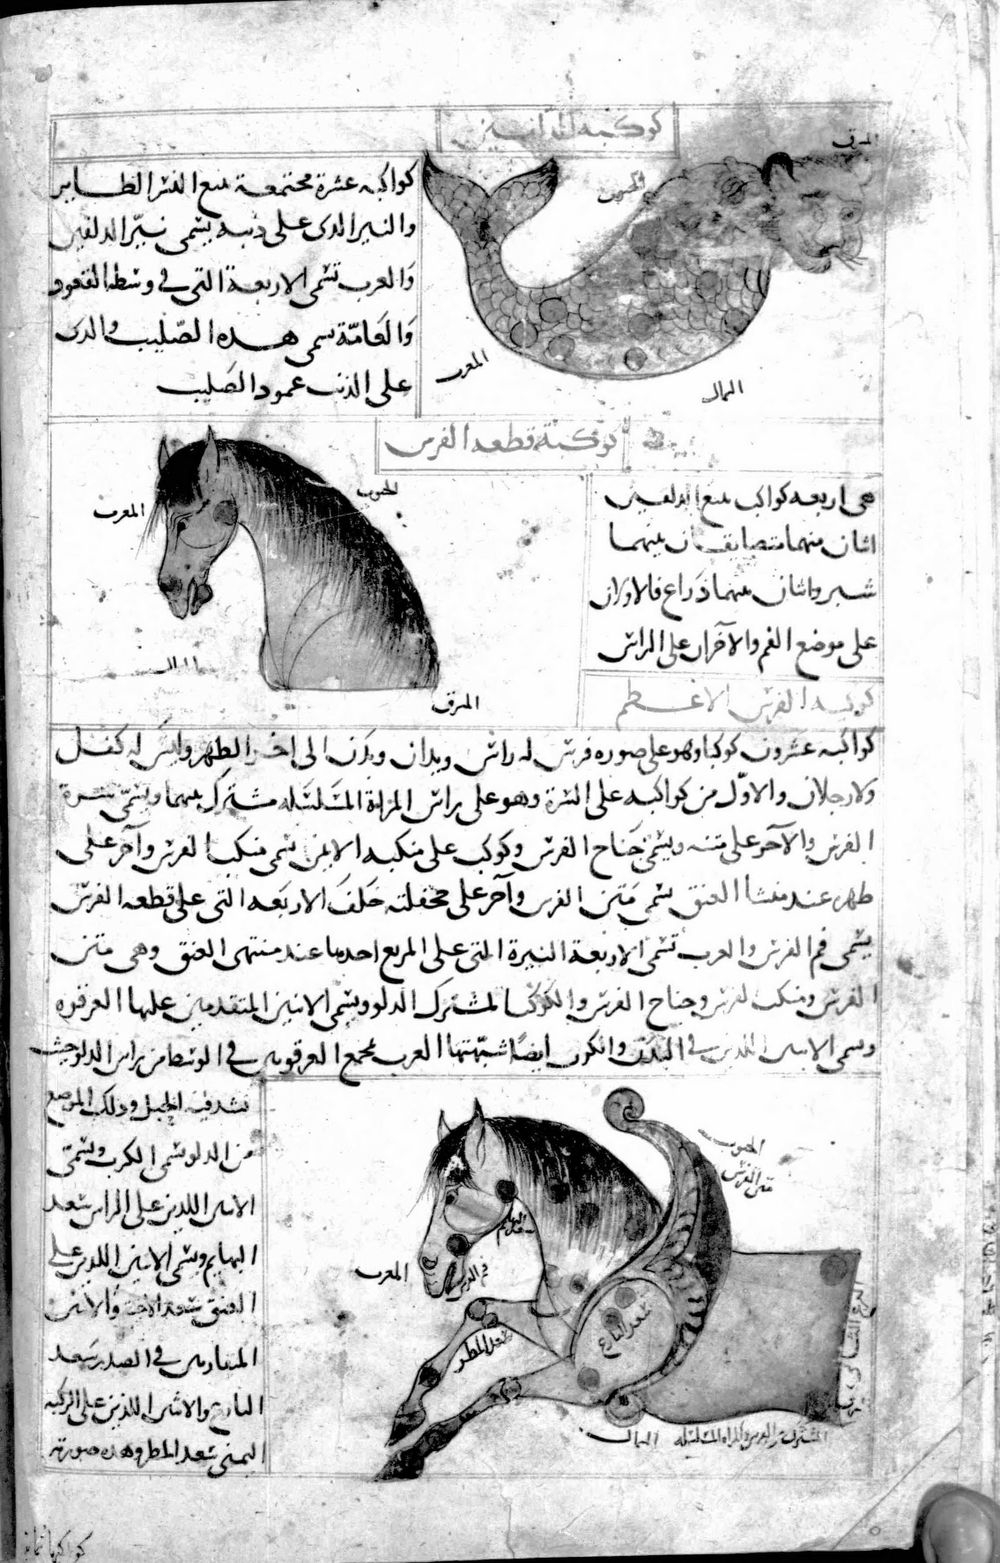 كوكبة الدلفين
المشرق
الجنوب
كواكبه عشرة مجتمعة تتبع النسر الطاير
والنير الذى على ذنبه يسمى نير الدلفين
والعرب تسمى الاربعة التى فى وسطه القعود
والعامّة تسمى هذه الصّليب والذى
على الذنب عمود الصّليب
المغرب
الشمال
كوكبة قطعه الفرس
الجنوب
المغرب
الشمال
المشرق
هى اربعه كواكب تتبع الدلفين
اثنان منهما متضايقان بينهما
شبر واثنان بينهما ذراع فالاولان
على موضع الفم والآخران على الراس
كوكبة الفرس الاعظم
كواكبه عشرون كوكبا وهو على صوره فرس له راس ويدان وبدن الى اخر الظهر وليس له كفل
ولا رجلان والاوّل من كواكبه على السّرة وهو على راس المراة المسلسله مشترك بينهما ويسمّى سّرة
الفرس والآخر على متنه ويسمّى جناح الفرس وكوكب على منكبه الايمن يسمى منكب الفرس وآخر على
ظهره عند منشا العنق يسمى متن الفرس وآخر على جحفلته خلف الاربعه التى على قطعه الفرس
يسمى فم الفرس والعرب تسمى الاربعة النيرة التى على المربع احدها عند منتهى العنق وهى متن
الفرس ومنكب الفرس وجناح الفرس والكوكب المشترك الدلو ويسمى الاثنين المتقدمين عليها العرقوه
ويسمى الاثنين اللذين فى البدن والكرب ايضًا شبّهتها العرب بمجمع العرقوتين فى الوسط من راس الدلو حيث
تشد فيه الحبل وذلك الموضع
من الدلو يسمى الكرب ويسمّى
الاثنين اللذين على الراس سعد
البهايم ويسمى الاثنين اللذين على
العنق سعد والاثنين
المتقاربين فى الصدر سعد
البارع والاثنين اللذين على الركبه
اليمنى سعد المطر وهذه صورته
الجنوب
متن الفرس
المغرب
سعد البهايم
فم الفرس
سعد البارع
سعد المطر
المشترك بين الفرس والمراه المسلسله
الشمال